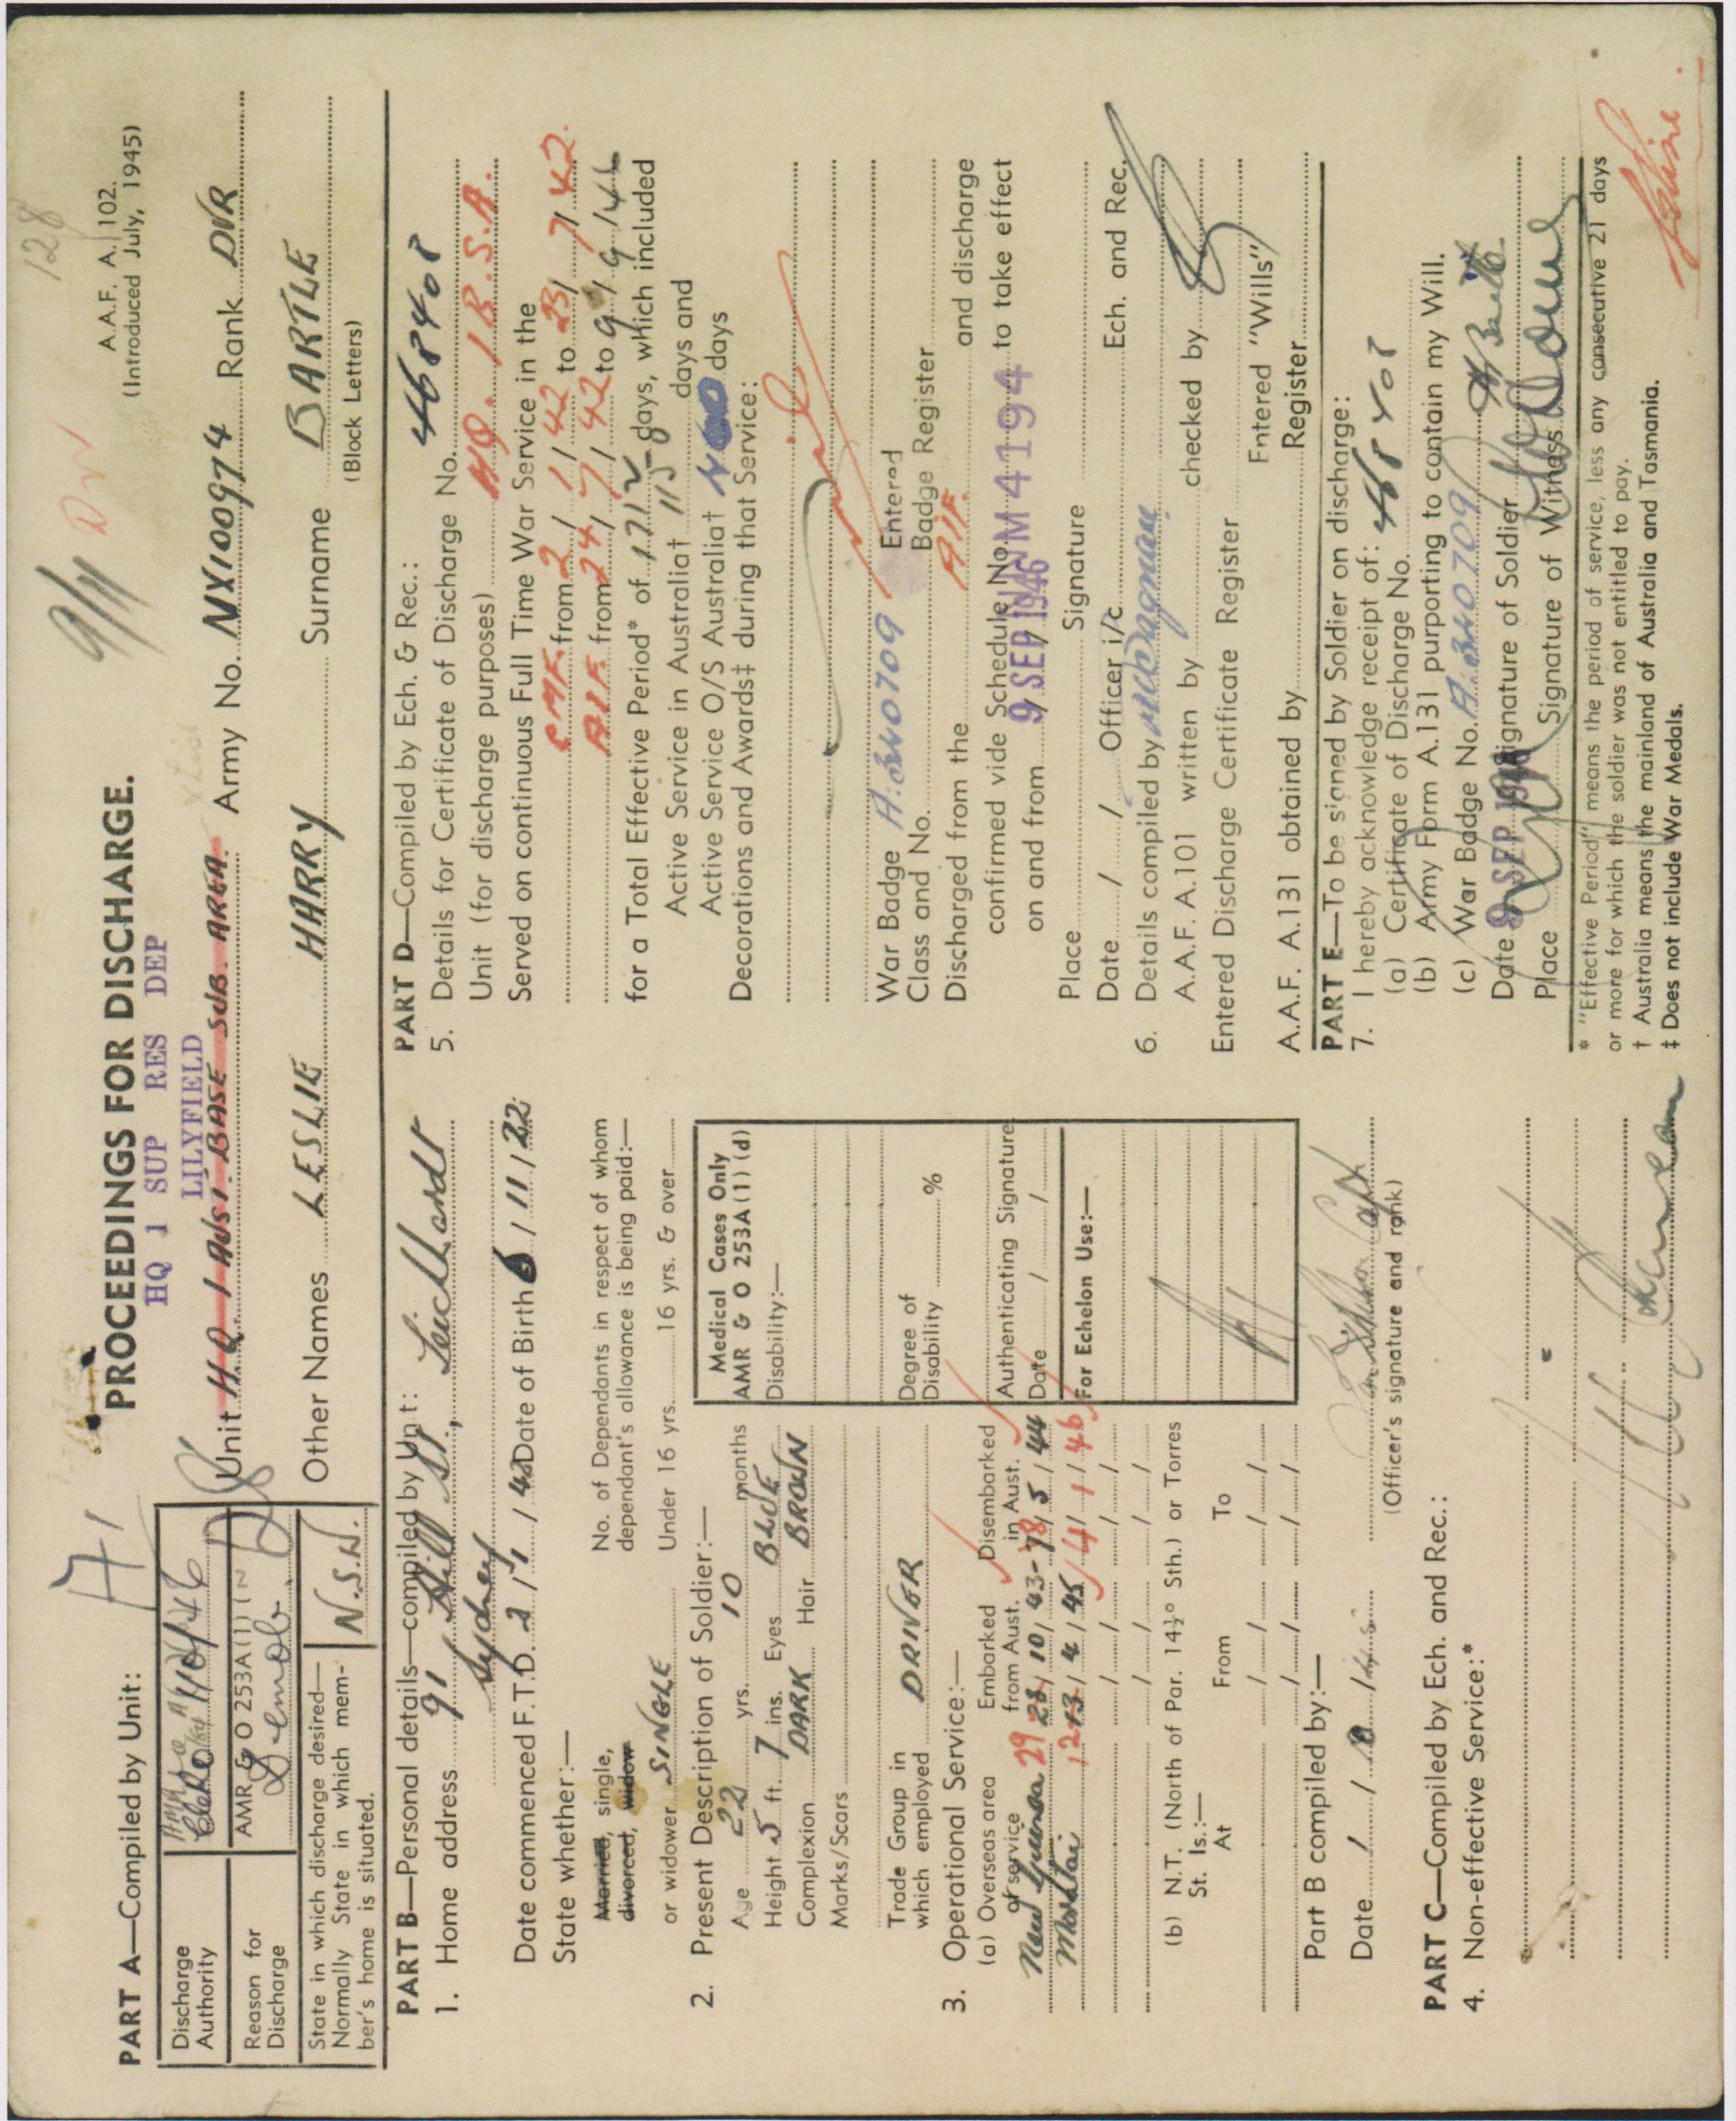 128
A.A.F. A. 102.
(Introduced July, 1945)
9/11
PROCEEDINGS FOR DISCHARGE.
HQ 1 SUP RES DEP
LILYFIELD
PART A—Compiled by Unit:
Discharge Authority
Reason for Discharge
AMR & O 253A(1)
Demob.
State in which discharge desired—
Normally State in which mem-
ber's home is situated.
N.S.W.
Unit H.Q. 1 AUST. BASE SUB. AREA Army No. NX100974 Rank DVR
Other Names LESLIE HARRY Surname BARTLE
(Block Letters)
PART B—Personal details—compiled by Unit:
1. Home address 91 Hill St., Leichhardt
Sydney
Date commenced F.T.D. 2 / 1 / 42 Date of Birth 6 / 11 / 22
State whether:—
Married, single,
divorced, widow
or widower SINGLE
No. of Dependants in respect of whom
dependant's allowance is being paid:—
Under 16 yrs. 16 yrs. & over
2. Present Description of Soldier:—
Age 22 yrs. 10 months
Height 5 ft. 7 ins. Eyes BLUE
Complexion DARK Hair BROWN
Marks/Scars
Trade Group in
which employed DRIVER
Medical Cases Only
AMR & O 253A(1)(d)
Disability:—
Degree of
Disability %
Authenticating Signature
Date / /
For Echelon Use:—
3. Operational Service:—
(a) Overseas area of service Embarked from Aust. Disembarked in Aust.
New Guinea 29 10 / 43 - 5 / 44
Morotai 4 / 45 4 / 1 / 46
(b) N.T. (North of Par. 14½° Sth.) or Torres
St. Is.:—
At From To
Part B compiled by:—
Date
(Officer's signature and rank)
PART C—Compiled by Ech. and Rec.:
4. Non-effective Service:*
PART D—Compiled by Ech. & Rec.:
5. Details for Certificate of Discharge No. 468408
Unit (for discharge purposes) HQ. 1 B.S.A.
Served on continuous Full Time War Service in the
C.M.F. from 2 / 1 / 42 to 23 / 7 / 42.
A.I.F. from 24 / 7 / 42 to 9 / 9 / 46
for a Total Effective Period* of 1712 days, which included
Active Service in Australia† 1115 days and
Active Service O/S Australia† days
Decorations and Awards‡ during that Service:
nil
War Badge
Class and No. A.340709
Entered
Badge Register
Discharged from the A.I.F. and discharge
confirmed vide Schedule No. NM 4194 to take effect
on and from 9 SEP 1946
Place Signature
Date / / Officer i/c Ech. and Rec.
6. Details compiled by
A.A.F. A.101 written by checked by
Entered Discharge Certificate Register
Entered "Wills" Register
A.A.F. A.131 obtained by
PART E—To be signed by Soldier on discharge:
7. I hereby acknowledge receipt of:
(a) Certificate of Discharge No. 468408
(b) Army Form A.131 purporting to contain my Will.
(c) War Badge No. A.340709
Date 9 SEP 1946 Signature of Soldier
Place Signature of Witness
* "Effective Period" means the period of service, less any consecutive 21 days
or more for which the soldier was not entitled to pay.
† Australia means the mainland of Australia and Tasmania.
‡ Does not include War Medals.